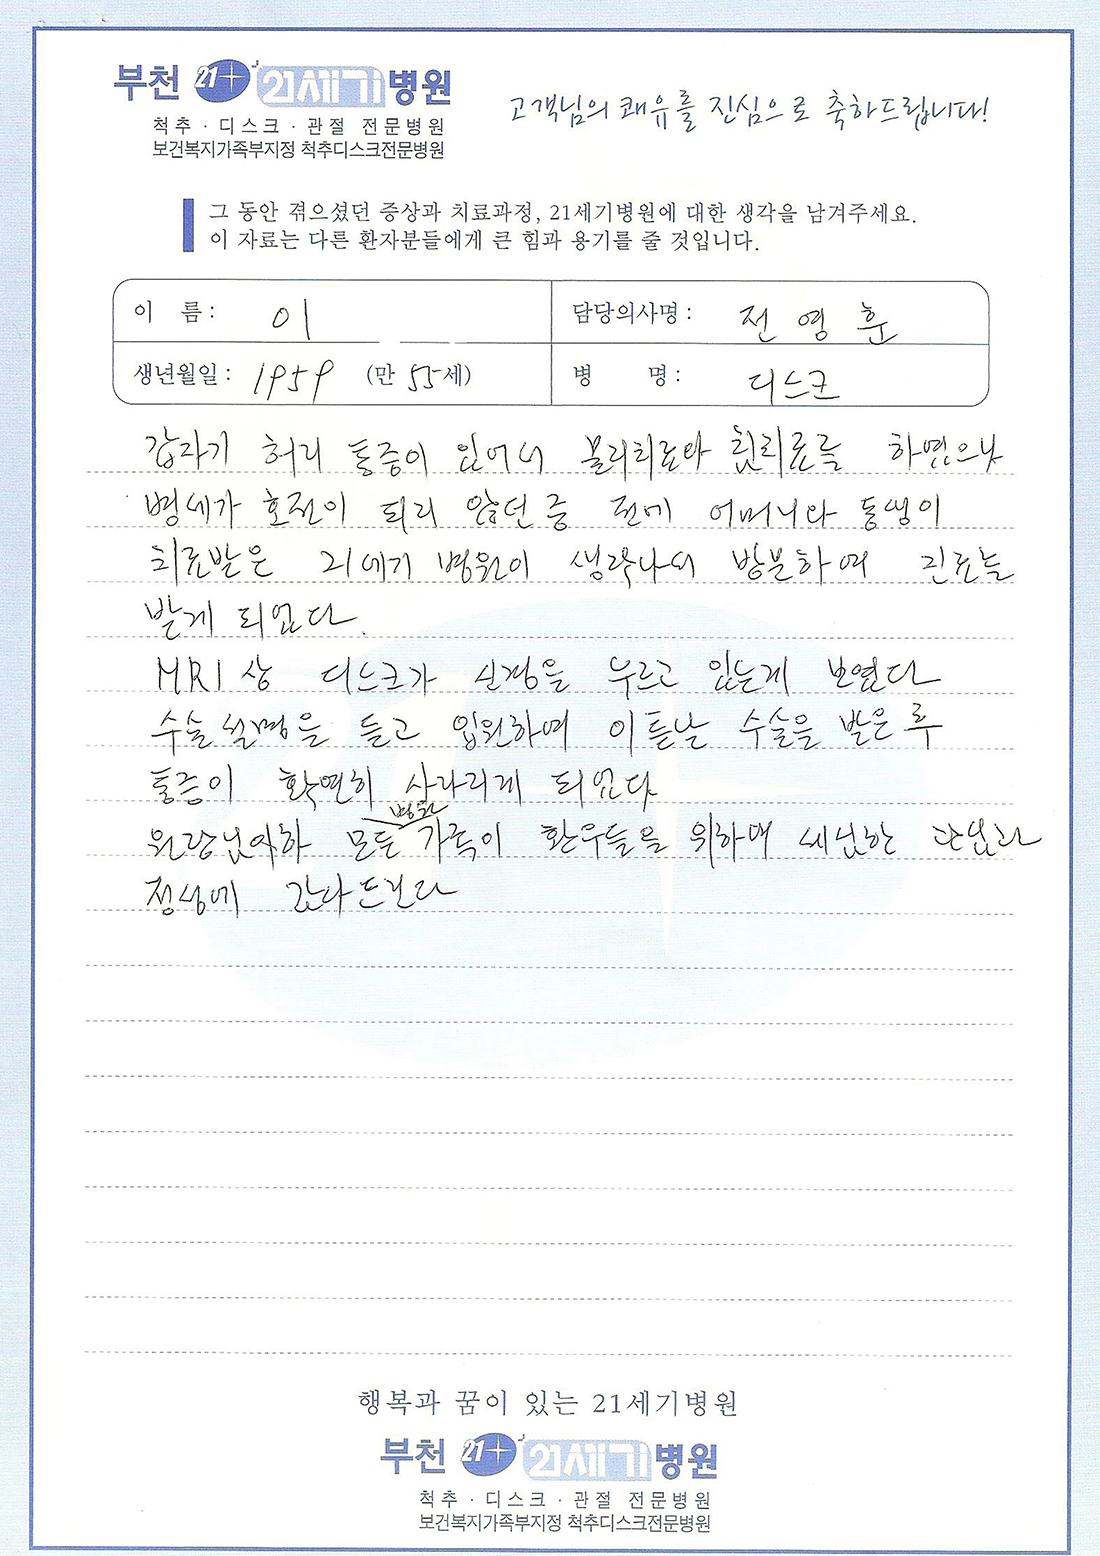 부천 21+ 21세기병원
척추 · 디스크 · 관절 전문병원
보건복지가족부지정 척추디스크전문병원
고객님의 쾌유를 진심으로 축하드립니다!
그 동안 겪으셨던 증상과 치료과정, 21세기병원에 대한 생각을 남겨주세요.
이 자료는 다른 환자분들에게 큰 힘과 용기를 줄 것입니다.
이 름 : 이
담당의사명 : 전영훈
생년월일 : 1959 (만 55세)
병 명 : 디스크
갑자기 허리 통증이 있어서 물리치료와 침치료를 하였으나
병세가 호전이 되지 않던 중 전에 어머니와 동생이
치료받은 21세기 병원이 생각나서 방문하여 진료를
받게 되었다.
MRI상 디스크가 신경을 누르고 있는게 보였다
수술설명을 듣고 입원하며 이튿날 수술을 받은 후
통증이 확연히 사라지게 되었다
원장님이하 모든 병원 가족이 환우들을 위하여 세심한 관심과
정성에 감사드린다
행복과 꿈이 있는 21세기병원
부천 21+ 21세기병원
척추 · 디스크 · 관절 전문병원
보건복지가족부지정 척추디스크전문병원